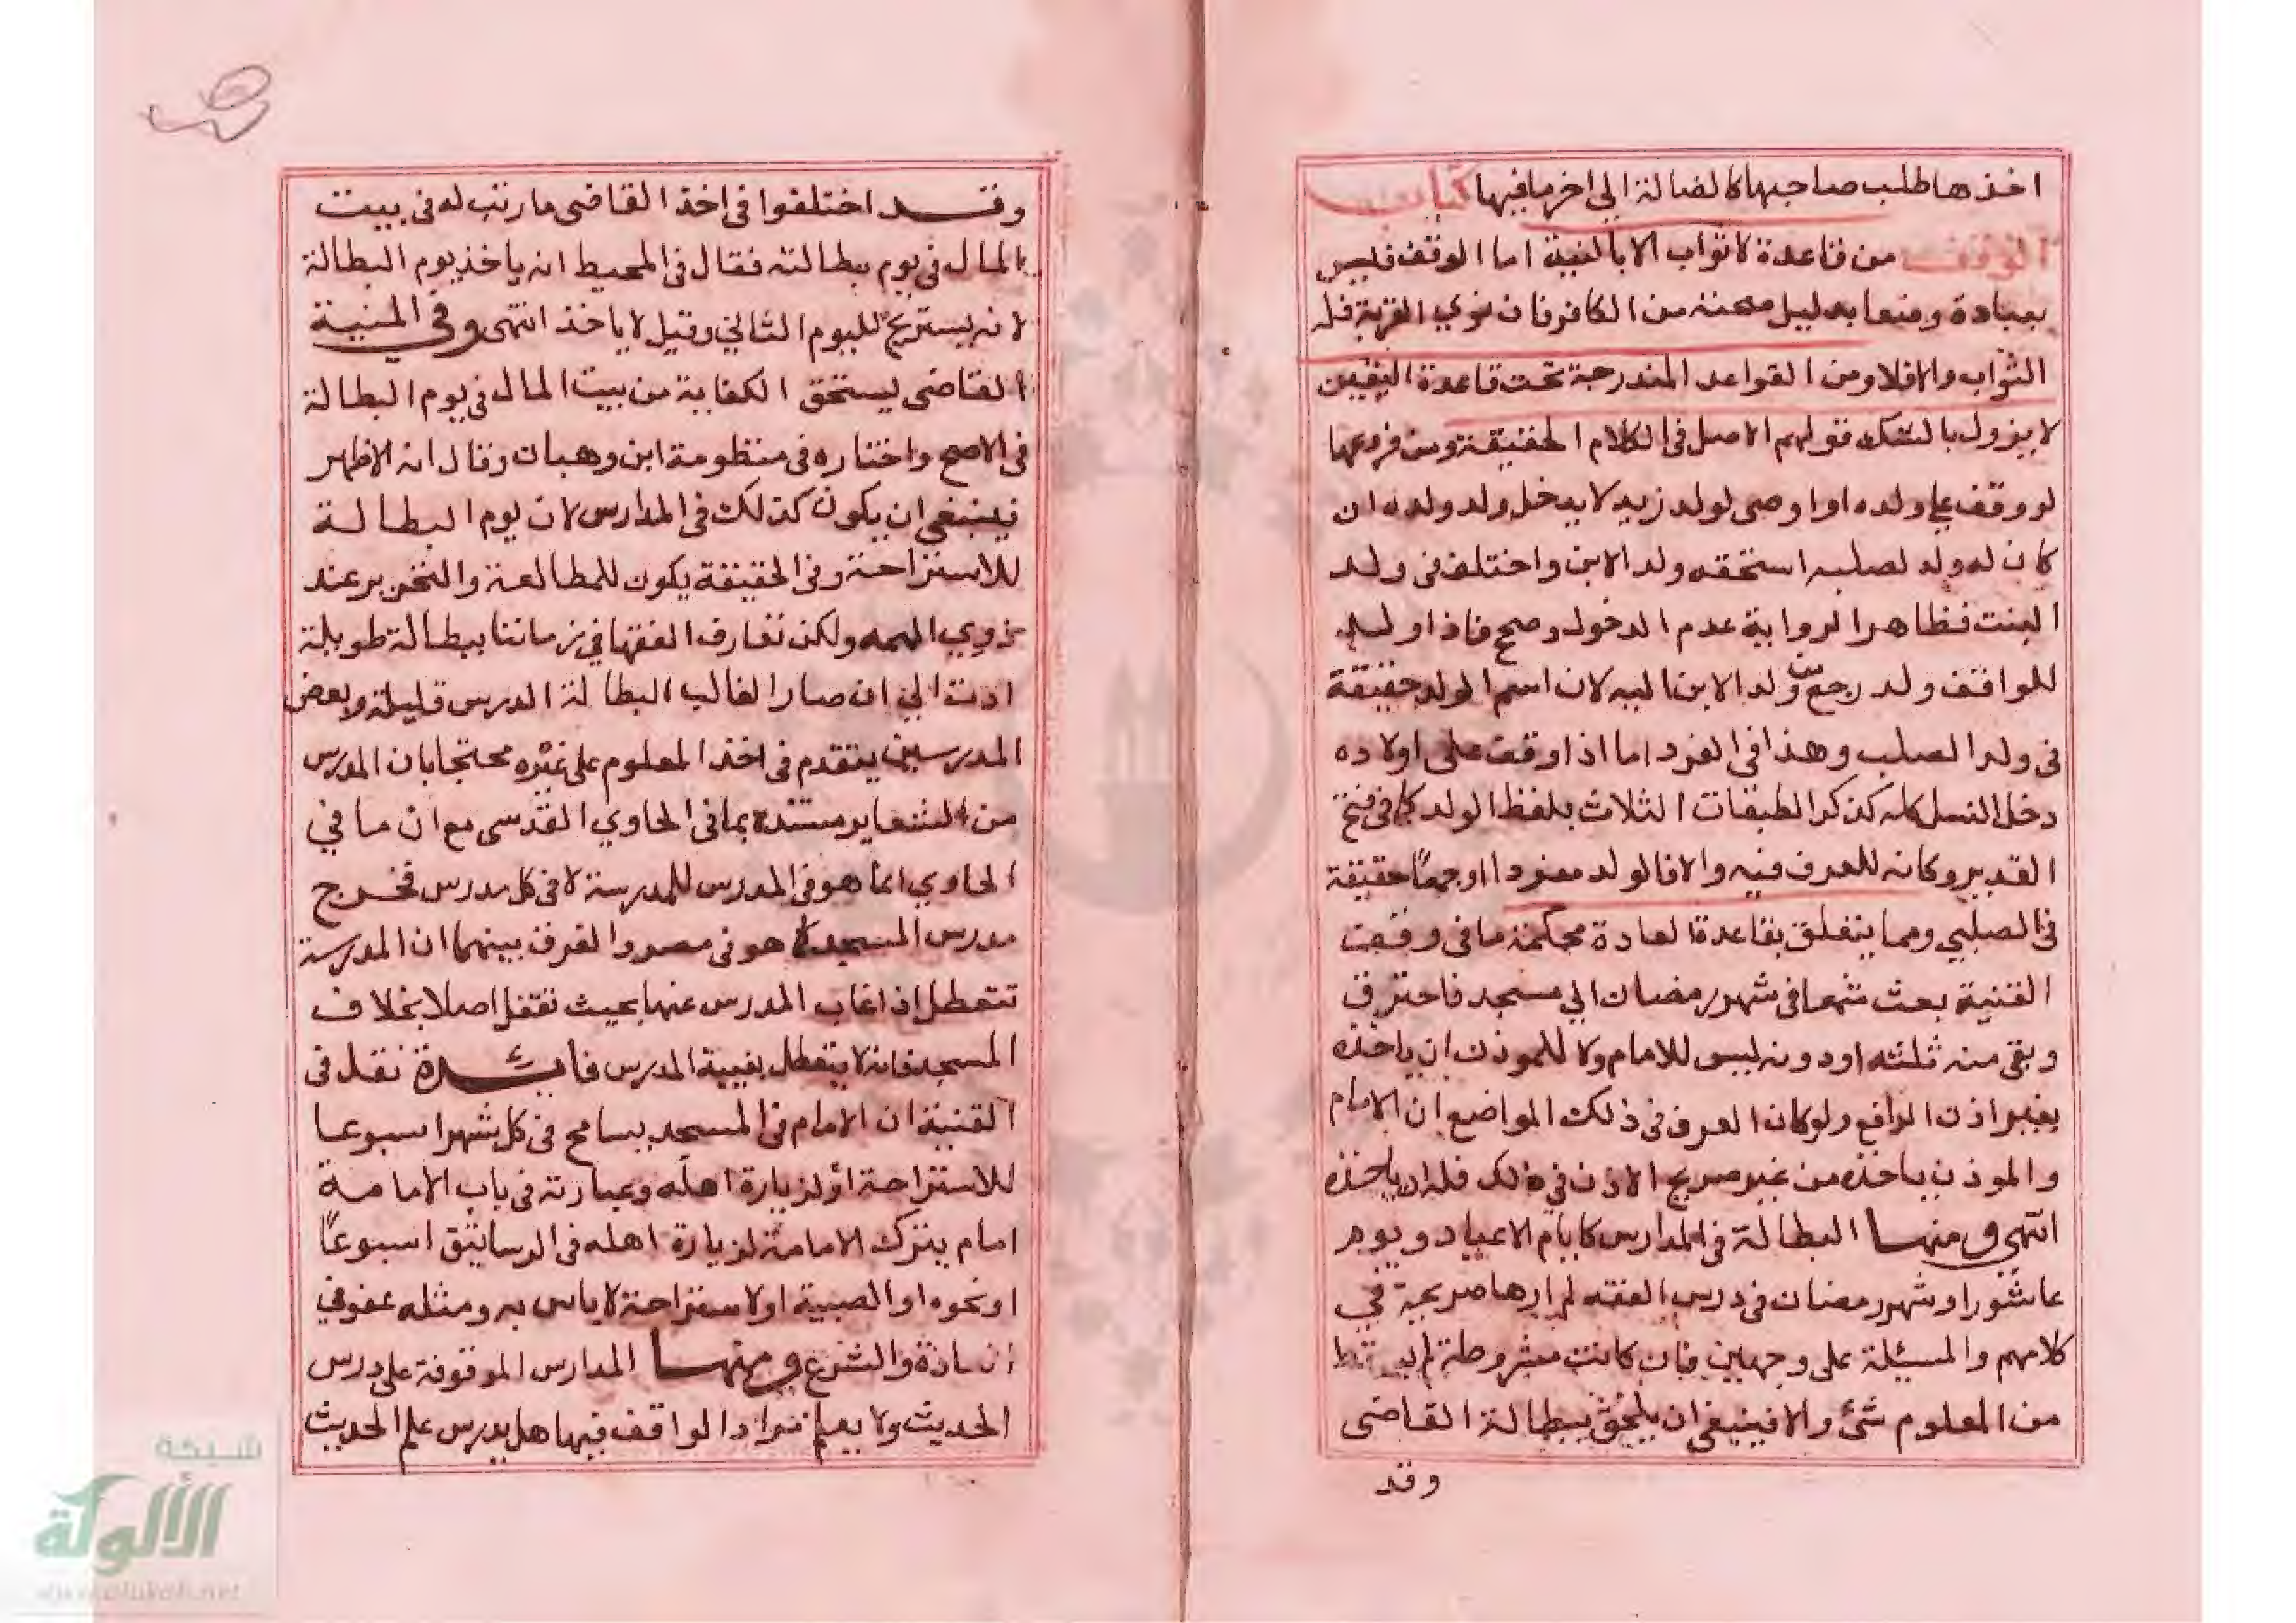 اخذها طلب صاحبها كالضالة الي اخر ما فيها كتاب
الوقف من قاعدة لا ثواب الا بالنية اما الوقف فليس
بعبادة وضعا بدليل صحته من الكافر فان نوي القربة فله
الثواب والا فلا ومن القواعد المندرجة تحت قاعدة اليقين
لا يزول بالشك قولهم الاصل في الكلام الحقيقة ومن فروعها
لو وقف علي ولده او اوصي لولد زيد لا يدخل ولد ولده ان
كان له ولد لصلبه استحقه ولد الابن واختلف في ولد
البنت فظاهر الرواية عدم الدخول وصحح فاذا ولد
للواقف ولد رجع من ولد الابن اليه لان اسم الولد حقيقة
في ولد الصلب وهذا في المفرد اما اذا وقف على اولاده
دخل النسل كله كذكر الطبقات الثلاث بلفظ الولد كما في فتح
القدير وكانه للعرف فيه والا فالولد مفردا او جمعا حقيقة
في الصلبي ومما يتعلق بقاعدة العادة محكمة ما في وقف
القنية بعث شمعا في شهر رمضان الي مسجد فاحترق
وبقي منه ثلثه او دونه ليس للامام ولا للموذن ان ياخذه
بغير اذن الدافع ولو كان العرف في ذلك المواضع ان الامام
والموذن ياخذه من غير صريح الاذن في ذلك فله ان ياخذه
انتهي ومنها البطالة في المدارس كايام الاعياد ويوم
عاشورا وشهر رمضان في درس الفقه لم ارها صريحة في
كلامهم والمسئلة على وجهين فان كانت مشروطة لم يسقط
من المعلوم شئ والا فينبغي ان يلحق ببطالة القاضي
وقد
وقد اختلفوا في اخذ القاضي ما رتب له في بيت
المال في يوم بطالته فقال في المحيط انه ياخذ يوم البطالة
لانه يستريح لليوم الثاني وقيل لا ياخذ انتهى وفي المنية
القاضي يستحق الكفاية من بيت المال في يوم البطالة
في الاصح واختاره في منظومة ابن وهبان وقال انه الاظهر
فينبغي ان يكون كذلك في المدارس لان يوم البطالة
للاستراحة وفي الحقيقة يكون للمطالعة والتحرير عند
ذوي الهمه ولكن تعارف الفقها في زماننا بطالة طويلة
ادت الي ان صار الغالب البطالة الدرس قليلة وبعض
المدرسين يتقدم في اخذ المعلوم على غيره محتجا بان المدرس
من الشعاير مستندا بما في الحاوي القدسي مع ان ما في
الحاوي انما هو في المدرس للمدرسة لا في كل مدرس فخرج
مدرس المسجد كما هو في مصر والفرق بينهما ان المدرسة
تتعطل اذا غاب المدرس عنها بحيث تقفل اصلا بخلاف
المسجد فانه لا يتعطل بغيبة المدرس فائدة نقل في
القنية ان الامام في المسجد يسامح في كل شهر اسبوعا
للاستراحة او لزيارة اهله وعبارته في باب الامامة
امام يترك الامامة لزيارة اهله في الرساتيق اسبوعا
او نحوه او لمصيبة او لاستراحة لا باس به ومثله عفو في
العادة والشرع ومنها المدارس الموقوفة على درس
الحديث ولا يعلم مراد الواقف فيها هل يدرس علم الحديث
شبكة
الألوكة
www.alukah.net